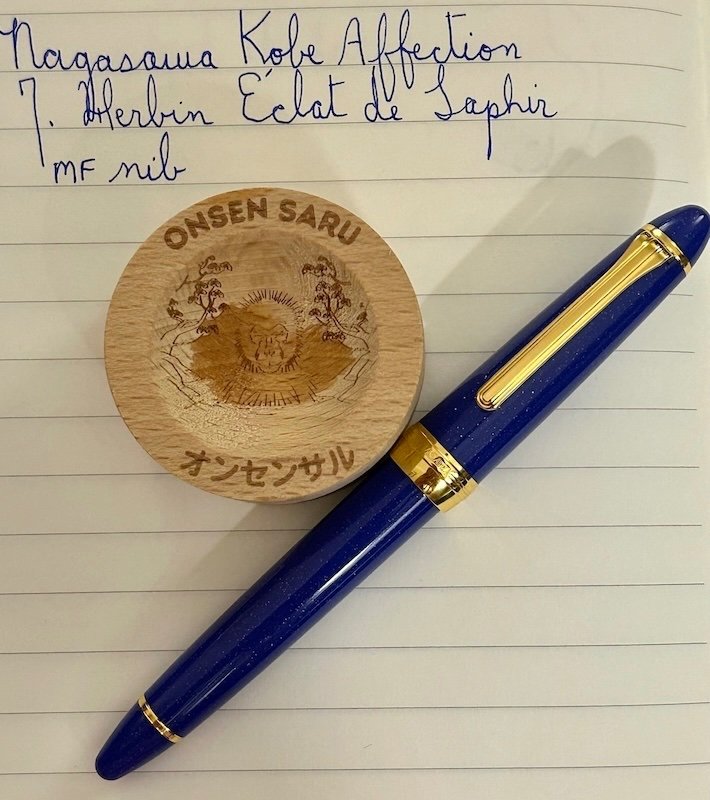 Nagasawa Kobe Affection
J. Herbin Éclat de Saphir
MF nib
ONSEN SARU
オンセンサル